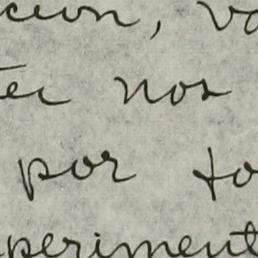 cion, va
tei nos
por to
periment